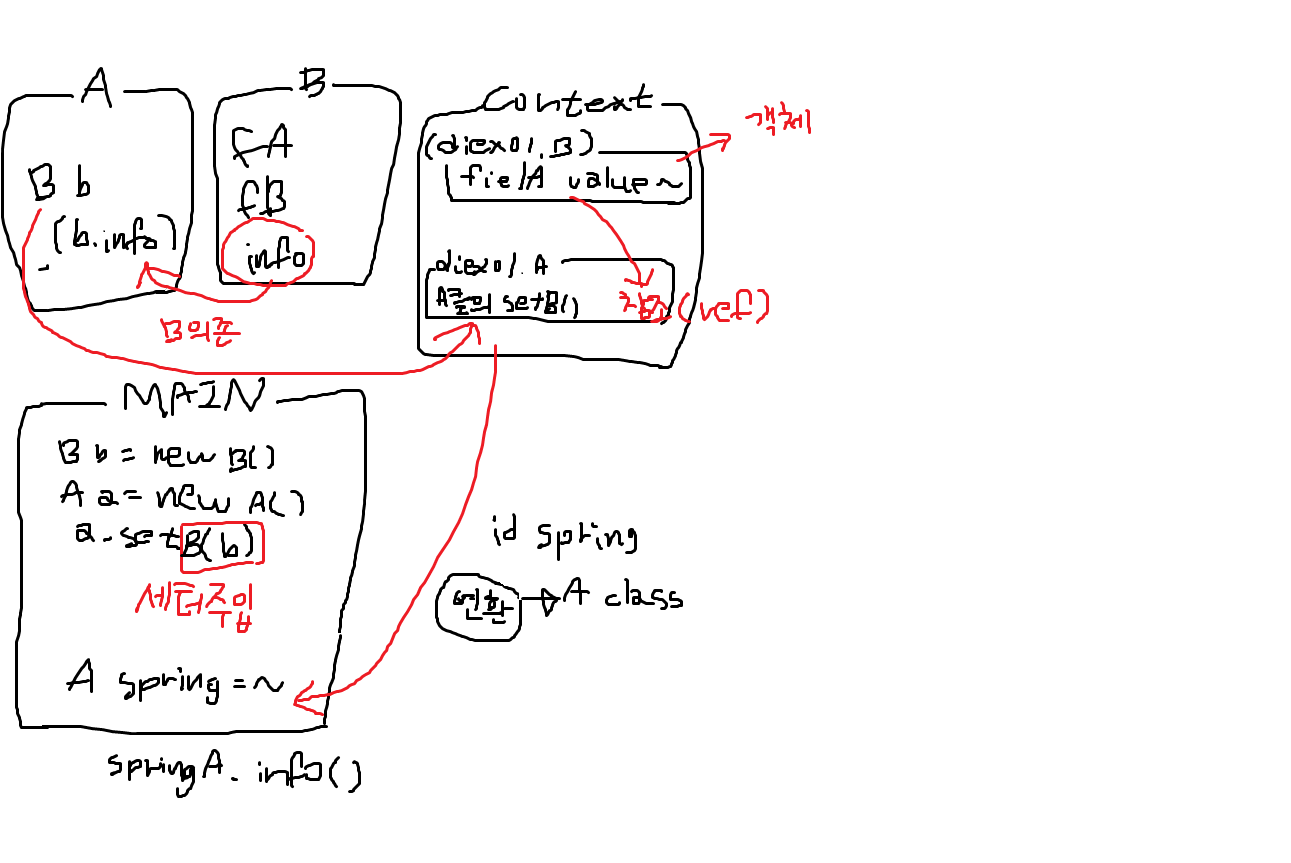 A
B b
(b.info)
B
fA
fB
info
B의존
Context
(diex01.B)
fielA value~
객체
diex01.A
A클의 setB()
참조(ref)
MAIN
B b = new B()
A a = new A()
a.setB(b)
세터주입
A spring = ~
springA. info()
id spring
변환 → A class